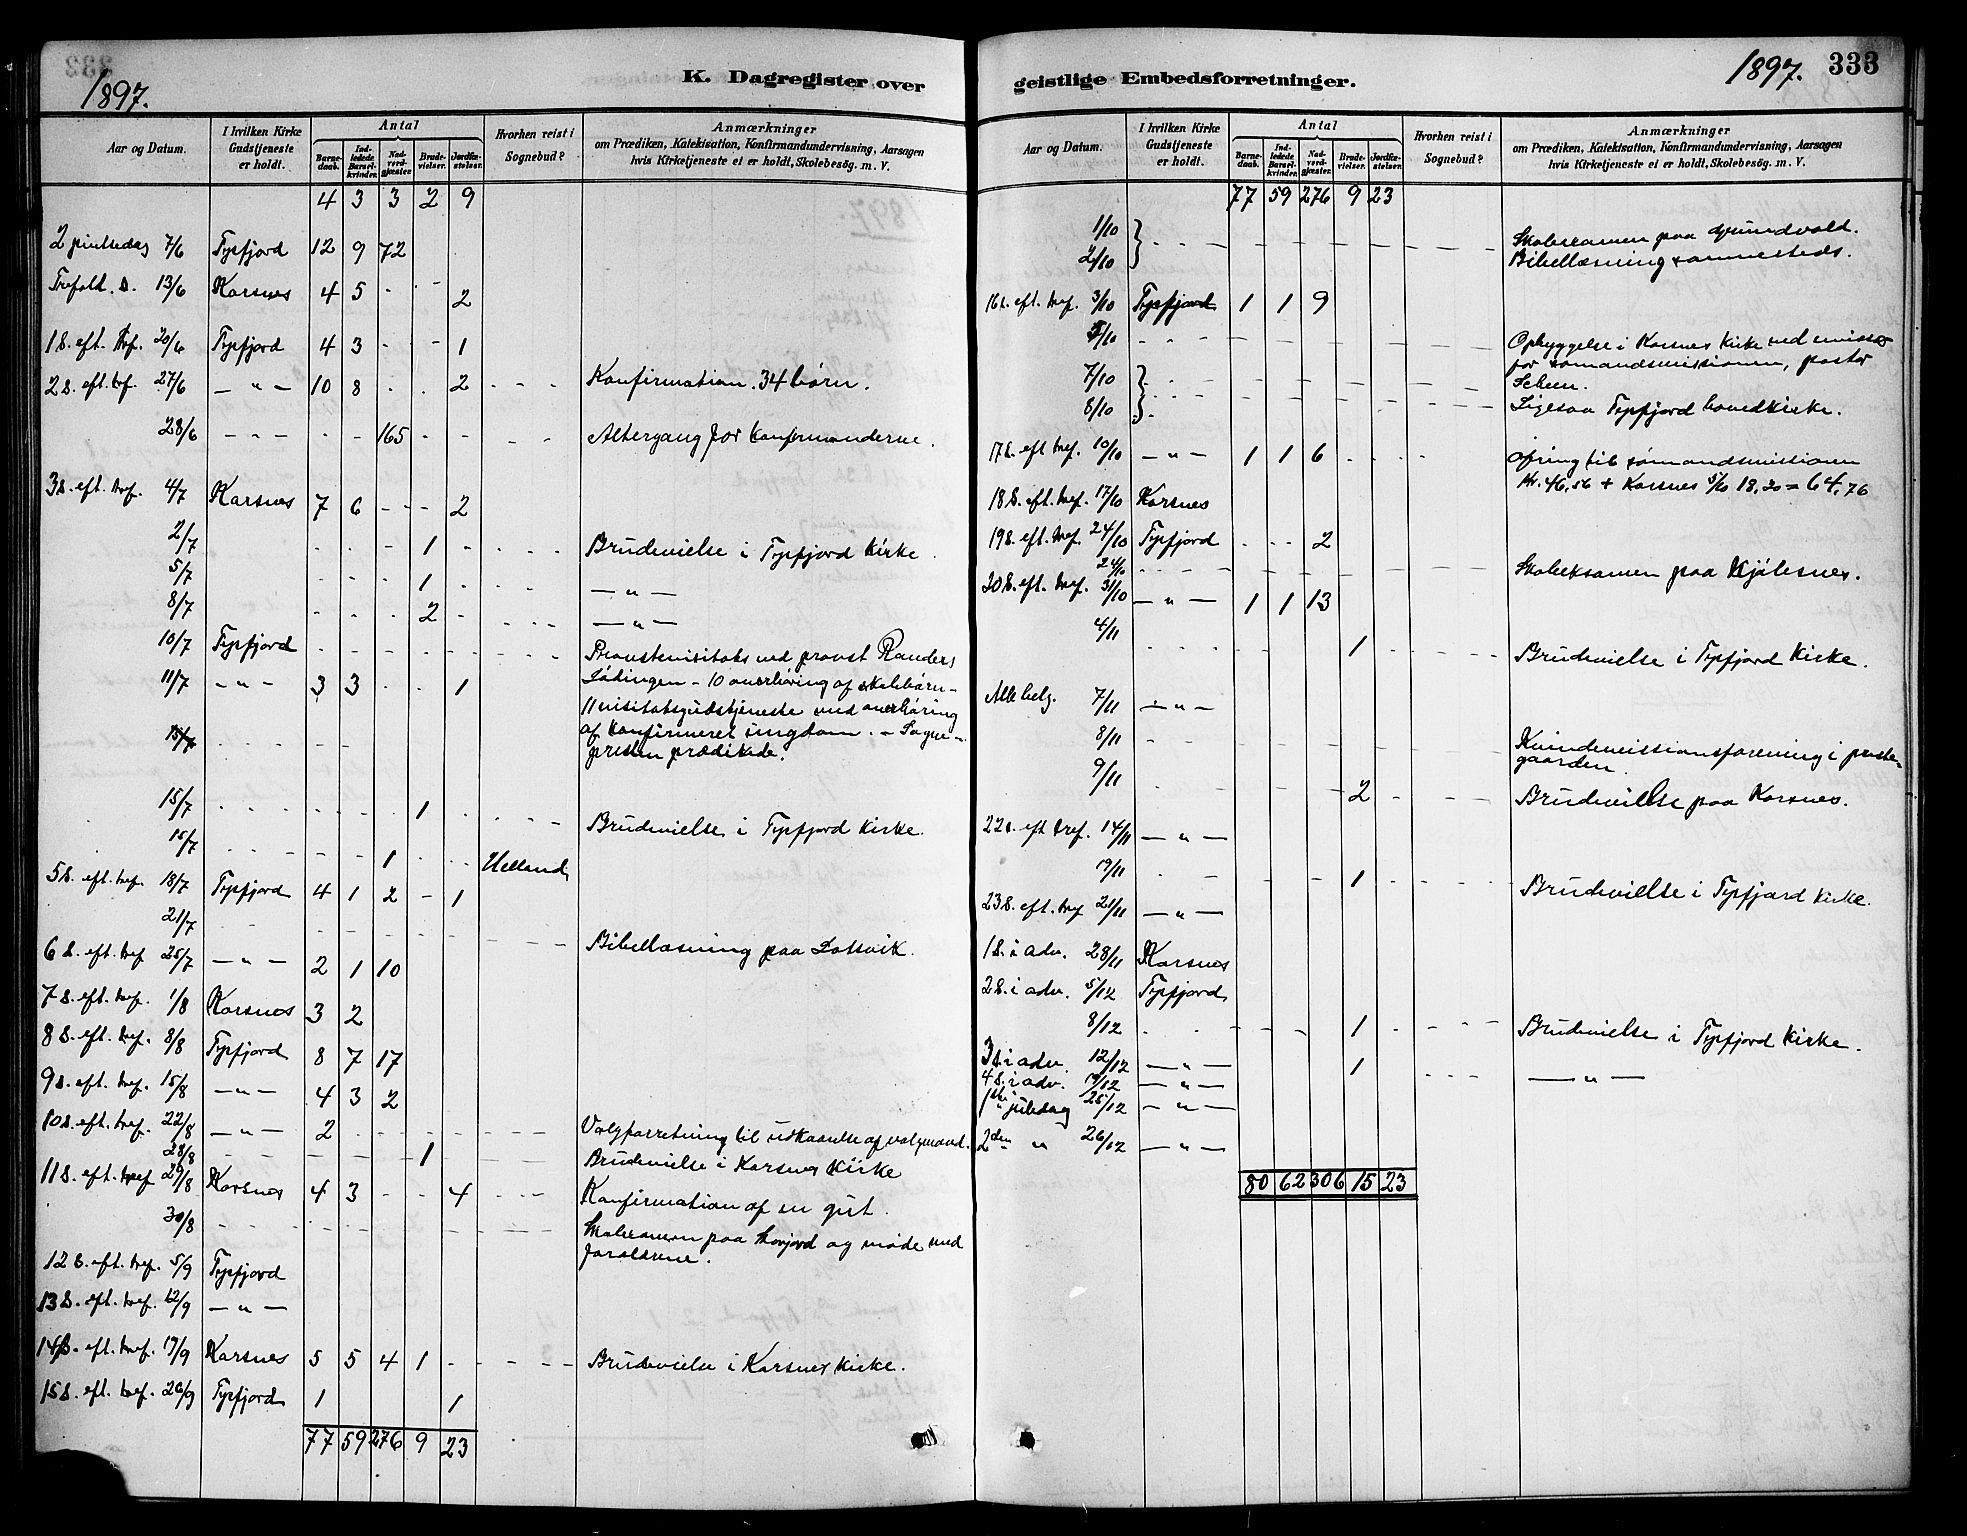 1897.
K. Dagregister over
Aar og Datum. I hvilken Kirke Gudstjeneste er holdt. Antal Barnedaab. Indledede Barselkvinder. Nadverdgjæster. Brudevielser. Jordfæstelser. Hvorhen reist i Sognebud? Anmærkninger om Prædiken, Katekisation, Konfirmandundervisning, Aarsagen hvis Kirketjeneste ei er holdt, Skolebesög. m. V.
4 3 3 2 9
2 pintsedag 7/6 Tysfjord 12 9 72
Trefold. S. 13/6 Korsnes 4 5 - - 2
1 S. eft. Tref. 20/6 Tysfjord 4 3 - - 1
2 S. eft. tref. 27/6 — " — 10 8 . . 2 - - - Konfirmation. 34 børn.
28/6 - - - - - 165 - - - - Altergang for konfirmanderne.
3 S. eft. tref. 4/7 Korsnes 7 6 - - - 2
2/7 - - - 1 - - - - Brudevielse i Tysfjord Kirke.
5/7 - - - 1 - - - — " —
8/7 - - - 2 - - - - — " —
10/7 Tysfjord - - - - - - - - Provstevisitats ved provst Randers
11/7 — " — 3 3 - - 1 Lødingen - 10 overhøring af skolebørn -
11 visitatsgudstjeneste med overhøring
15/7 - - - - - - af konfirmeret ungdom. - Sogne-
presten prædikede.
15/7 - - - - - 1 - - - - Brudevielse i Tysfjord Kirke.
15/7 - - - - - 1 - - - Helland
5 S. eft. tref. 18/7 Tysfjord 4 1 2 - 1
21/7 - - - - - - - - - Bibellæsning paa
6 S. eft. tref 25/7 — " — 2 1 10
7 S. eft. tref. 1/8 Korsnes 3 2
8 S. eft. tref. 8/8 Tysfjord 8 7 17
9 S. eft. tref. 15/8 — " — 4 3 2
10 S. eft. tref. 22/8 — " — 2 - - - - - - Valgforretning til udkaarelse af valgmænd.
28/8 - - - - - 1 - - - - Brudevielse i Korsnes Kirke
11 S. eft. tref 29/8 Korsnes 4 3 - - 4 - - Konfirmation af en gut.
30/8 - - - - - - - - - Skoleexamen paa og møde med
forældrene.
12 S. eft. tref. 5/9 Tysfjord
13 S. eft. tref. 12/9 — " —
14 S. eft. tref. 19/9 Korsnes 5 5 4 1 - - - - Brudevielse i Korsnes kirke.
15 S. eft. tref. 26/9 Tysfjord 1 1
77 59 276 9 23
1897. 333
geistlige Embedsforretninger.
Aar og Datum. I hvilken Kirke Gudstjeneste er holdt. Antal Barnedaab. Indledede Barselkvinder. Nadverdgjæster. Brudevielser. Jordfæstelser. Hvorhen reist i Sognebud? Anmærkninger om Prædiken, Katekisation, Konfirmandundervisning, Aarsagen hvis Kirketjeneste ei er holdt, Skolebesög. m. V.
77 59 276 9 23
1/10 - - - - - - - - - Skoleexamen paa
2/10 Bibellæsning sammesteds.
16 S. eft. tref. 3/10 Tysfjord 1 1 9
5/10 - - - - - - - - - Opbyggelse i Korsnes Kirke ved
7/10 - - - - - - - - - for sømandsmissionen, pastor
8/10 - - - - - - - - - Ligesaa Tysfjord hovedkirke.
17 S. eft tref. 10/10 — " — 1 1 6 - - - Ofring til sømandsmissionen
kr. 46,56 + Korsnes 5/10 18,20 = 64,76
18 S. eft. tref. 17/10 Korsnes
19 S. eft. tref. 24/10 Tysfjord - - - 2
24/10 - - - - - - - - - Skoleeksamen paa Kjølesnes.
20 S. eft. tref. 31/10 — " — 1 1 13
4/11 - - - - - 1 - - - - Brudevielse i Tysfjord Kirke.
Alle helg. 7/11 — " —
8/11 - - - - - - - Kvindemissionsforening i preste-
gaarden.
9/11 - - - - - 2 - - - Brudevielse paa Korsnes.
22 S. eft tref. 14/11 — " —
19/11 - - - - - 1 - - - Brudevielse i Tysfjord Kirke.
23 S. eft. tref 21/11 — " —
1 S. i adv. 28/11 Korsnes
2 S. i adv. 5/12 Tysfjord
8/12 - - - - - 1 - - - Brudevielse i Tysfjord Kirke.
3 S. i adv. 12/12 — " — 1 - - - — " —
4 S. i adv. 19/12 — " —
1ste juledag 25/12 — " —
2den " 26/12 — " —
80 62 306 15 23